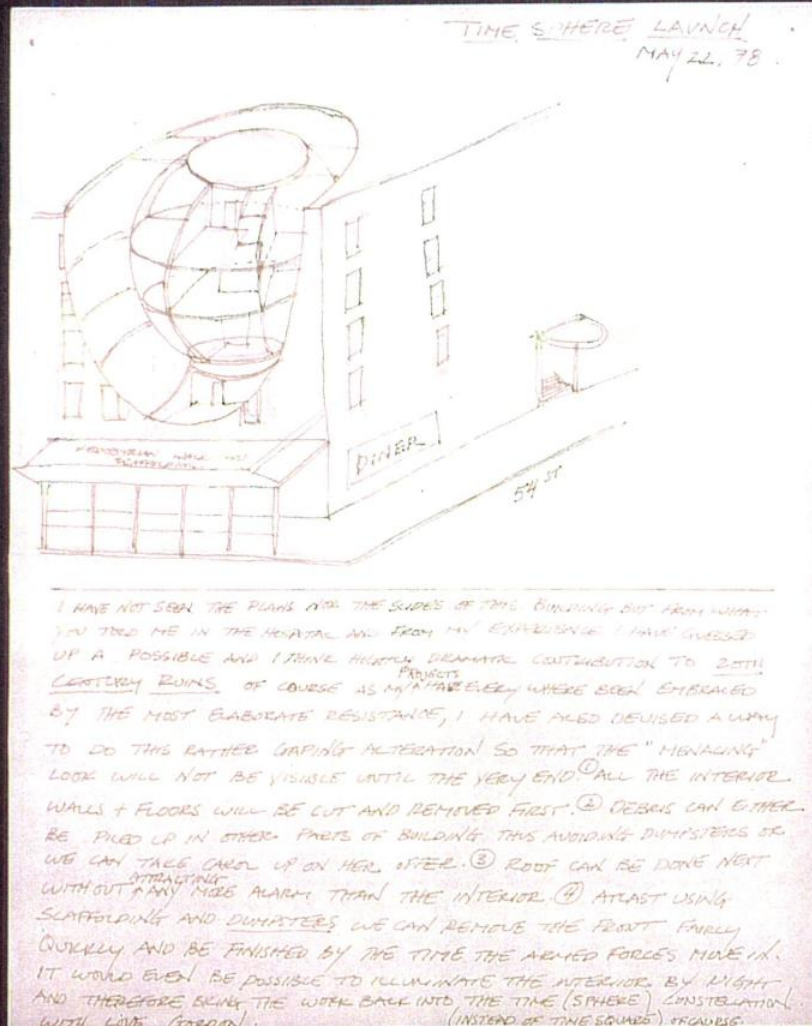 TIME SPHERE LAUNCH
MAY 22. 78.
WALL AND
SCAFFOLDING
DINER
54 ST
I HAVE NOT SEEN THE PLANS NOR THE SLIDES OF THIS BUILDING BUT FROM WHAT
YOU TOLD ME IN THE HOSPITAL AND FROM MY EXPERIENCE I HAVE GUESSED
UP A POSSIBLE AND I THINK HIGHLY DRAMATIC CONTRIBUTION TO 20TH
CENTURY RUINS. OF COURSE AS MY PROJECTS HAVE EVERY WHERE BEEN EMBRACED
BY THE MOST ELABORATE RESISTANCE, I HAVE ALSO DEVISED A WAY
TO DO THIS RATHER GAPING ALTERATION SO THAT THE "MENACING"
LOOK WILL NOT BE VISIBLE UNTIL THE VERY END ① ALL THE INTERIOR
WALLS + FLOORS WILL BE CUT AND REMOVED FIRST. ② DEBRIS CAN EITHER
BE PILED UP IN OTHER PARTS OF BUILDING THUS AVOIDING DUMPSTERS OR
WE CAN TAKE CAROL UP ON HER OFFER. ③ ROOF CAN BE DONE NEXT
WITHOUT ATTRACTING ANY MORE ALARM THAN THE INTERIOR ④ AT LAST USING
SCAFFOLDING AND DUMPSTERS WE CAN REMOVE THE FRONT FAIRLY
QUICKLY AND BE FINISHED BY THE TIME THE ARMED FORCES MOVE IN.
IT WOULD EVEN BE POSSIBLE TO ILLUMINATE THE INTERIOR BY NIGHT
AND THEREFORE BRING THE WORK BACK INTO THE TIME (SPHERE) CONSTELLATION
WITH LOVE GORDON. (INSTEAD OF TIME SQUARE) OF COURSE.